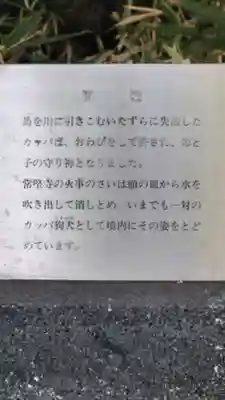 馬を川に引きこむいたずらに失敗した
カッパは、おわびをして許され、母と
子の守り神となりました。
常堅寺の火事のさいは頭の皿から水を
吹き出して消しとめ いまでも一対の
カッパ狛犬として境内にその姿をとど
めています。